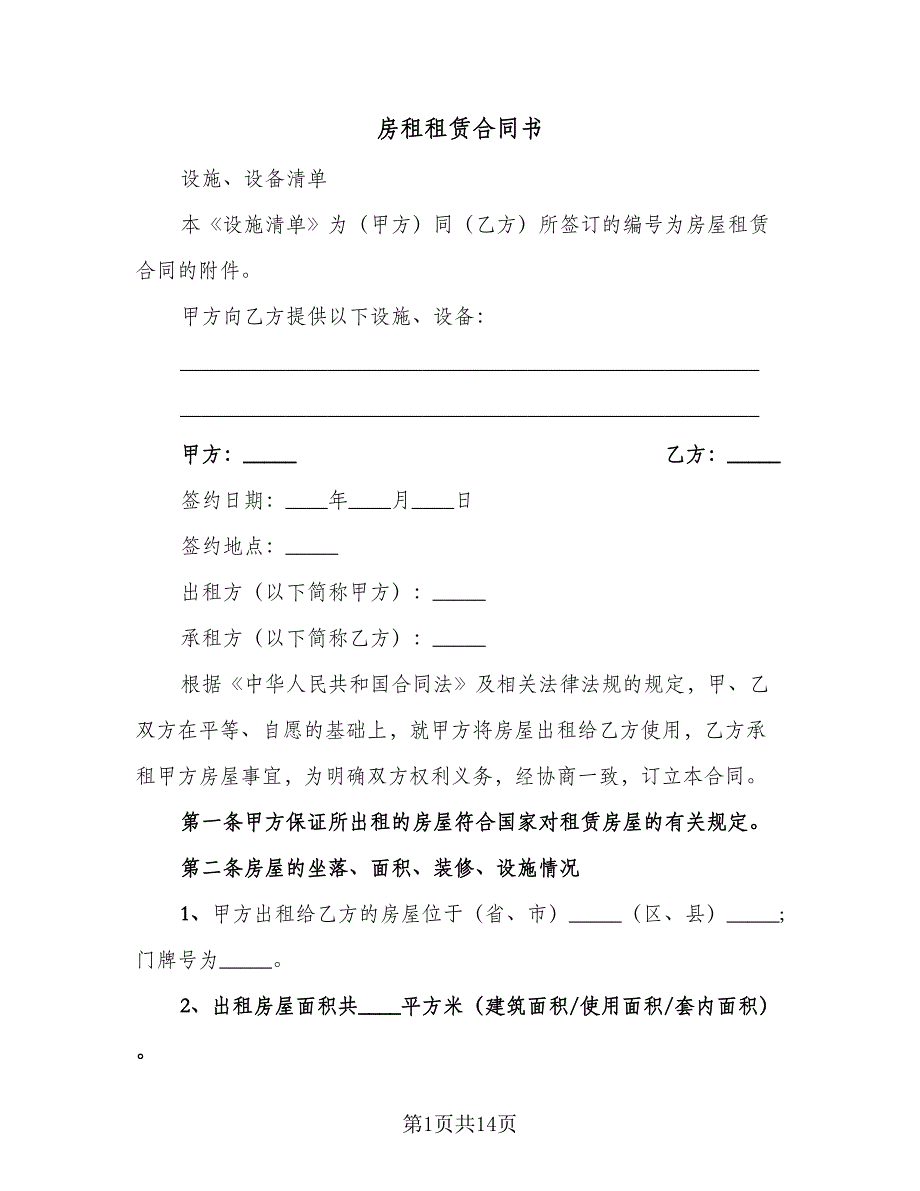 房租租赁合同书
设施、设备清单
本《设施清单》为（甲方）同（乙方）所签订的编号为房屋租赁
合同的附件。
甲方向乙方提供以下设施、设备：
_______________________________________________________
_______________________________________________________
甲方：_____ 乙方：_____
签约日期：____年____月____日
签约地点：_____
出租方（以下简称甲方）：_____
承租方（以下简称乙方）：_____
根据《中华人民共和国合同法》及相关法律法规的规定，甲、乙
双方在平等、自愿的基础上，就甲方将房屋出租给乙方使用，乙方承
租甲方房屋事宜，为明确双方权利义务，经协商一致，订立本合同。
第一条甲方保证所出租的房屋符合国家对租赁房屋的有关规定。
第二条房屋的坐落、面积、装修、设施情况
1、甲方出租给乙方的房屋位于（省、市）_____（区、县）_____;
门牌号为_____。
2、出租房屋面积共____平方米（建筑面积/使用面积/套内面积）
。
第1页共14页